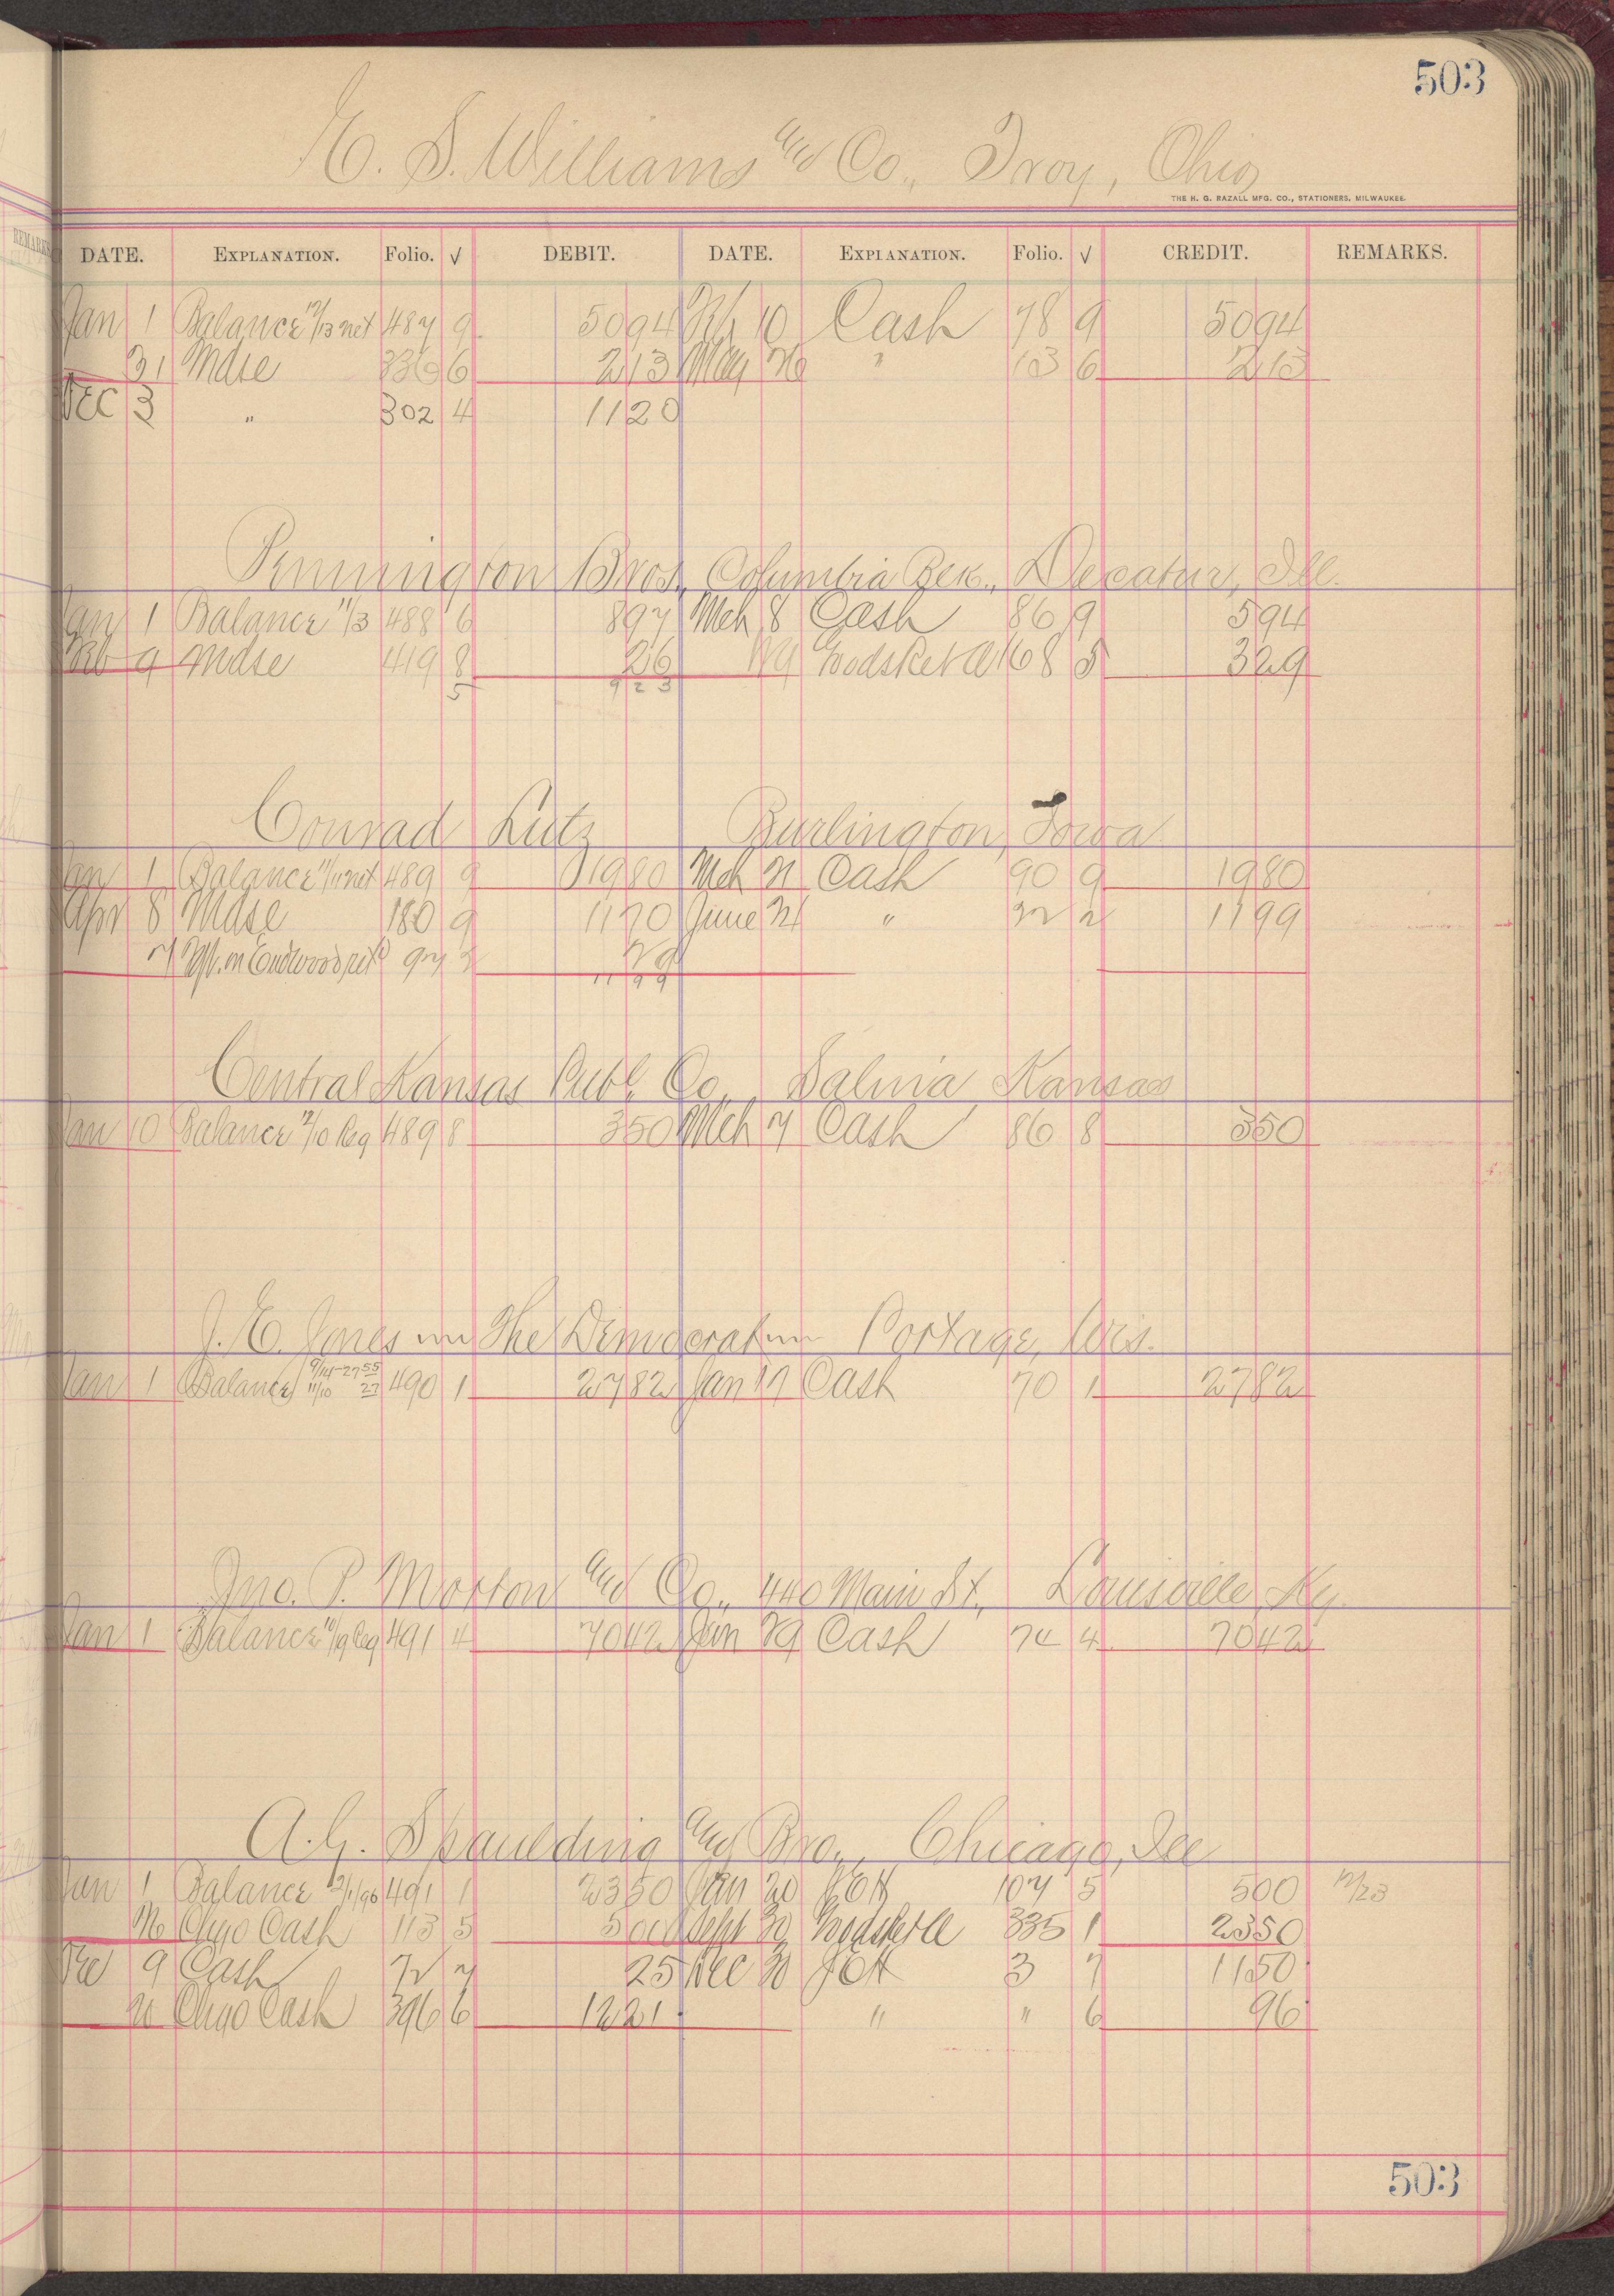 503
E. S. Williams and Co., Troy, Ohio
THE H. G. RAZALL MFG. CO., STATIONERS, MILWAUKEE.
DATE. EXPLANATION. Folio. √ DEBIT. DATE. EXPLANATION. Folio. √ CREDIT. REMARKS.
Jan 1 Balance 12/13 net 487 9 5094 Feb 10 Cash 78 9 5094
31 Mdse 336 6 213 May 26 " 103 6 213
Dec 3 " 302 4 1120
Pennington Bros., Columbia Bek., Decatur, Ill.
Jan 1 Balance 11/3 488 6 897 Mch 8 Cash 86 9 594
Feb 9 Mdse 419 8 26 Goods Ret'd 168 5 329
5 923
Conrad Lutz Burlington, Iowa
Jan 1 Balance 11/11 net 489 9 1980 Mch 21 Cash 90 9 1980
Apr 8 Mdse 180 9 1170 June 24 " 32 2 1199
29
1199
Central Kansas Publ. Co., Salina Kansas
Jan 10 Balance 12/10 Reg 489 8 350 Mch 7 Cash 86 8 350
J. E. Jones The Democrat Portage, Wis.
Jan 1 Balance 9/14-27 55 11/10 27 490 1 2782 Jan 17 Cash 70 1 2782
Jno. P. Morton and Co., 440 Main St., Louisville, Ky.
Jan 1 Balance 11/9 Reg 491 4 7042 Jan 29 Cash 74 4 7042
A. G. Spaulding and Bro., Chicago, Ill
Jan 1 Balance 12/1/96 491 1 2350 Jan 20 107 5 500 12/23
Chgo Cash 113 5 500 Sept 30 Goods Ret'd 335 1 2350
9 Cash 72 7 25 Dec 30 3 7 1150
Chgo Cash 396 6 1221 " " 6 96
503